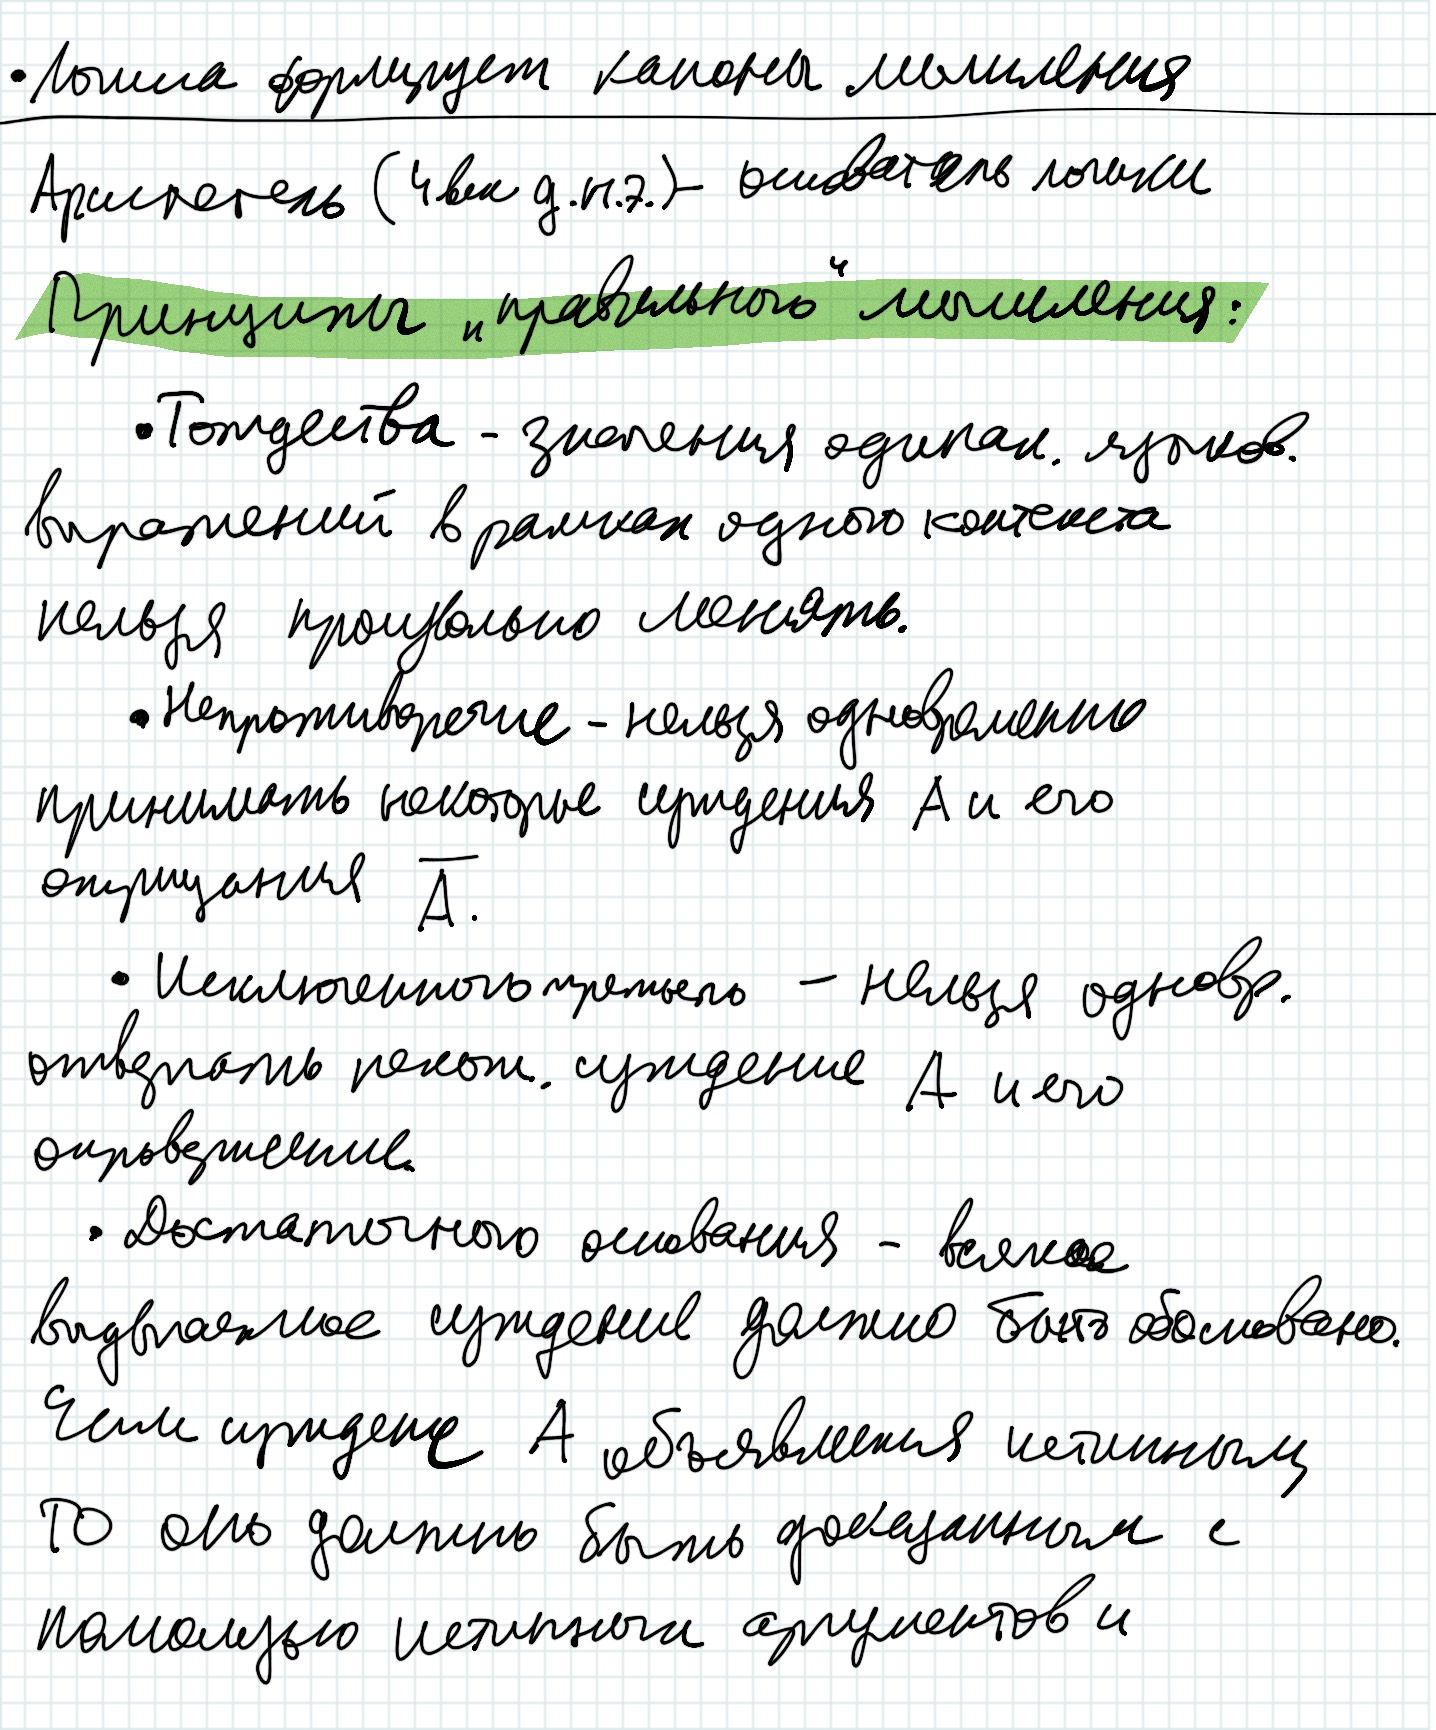 • Логика формирует каноны мышления
Аристотель (4 век д.н.э.) – основатель логики
Принципы „правильного“ мышления:
• Тождества – значения одинак. языков.
выражений в рамках одного контекста
нельзя произвольно менять.
• Непротиворечие – нельзя одновременно
принимать некоторые суждения А и его
отрицания A̅.
• Исключенного третьего – нельзя одновр.
отвергать некот. суждение А и его
опровержение.
• Достаточного основания – всякое
выдвигаемое суждение должно быть обосновано.
Если суждение А объявления истинным,
ТО оно должно быть доказанным с
помощью истинных аргументов и